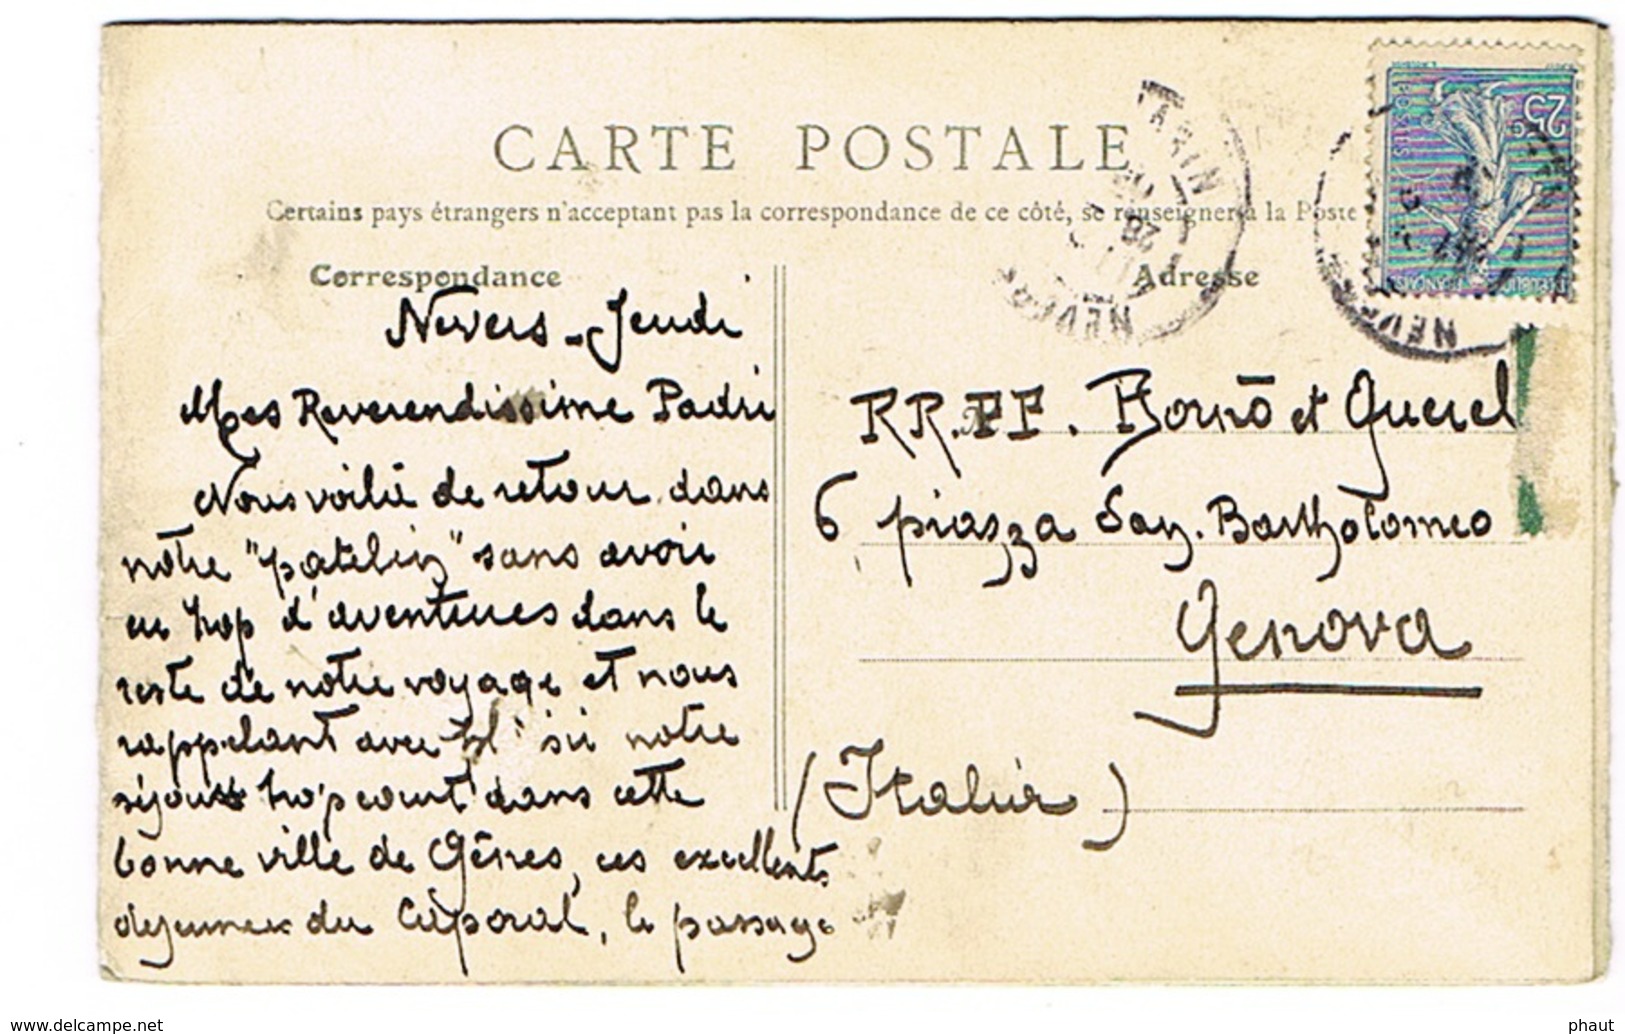 CARTE POSTALE
Certains pays étrangers n'acceptent pas la correspondance de ce côté, se renseigner à la Poste
Correspondance
Adresse
NEVERS
25c
POSTES
Nevers - Jeudi
Mes Reverendissime Padri
Nous voilà de retour dans
notre "patelin" sans avoir
eu trop d'aventures dans le
reste de notre voyage et nous
rappelant avec notre
séjour trop court dans cette
bonne ville de Gênes, ces excellents
dejeuners du Caporal, le passage
RR. PP. et Querel
6 piazza San Bartholomeo
Genova
(Italia)
www.delcampe.net
phaut